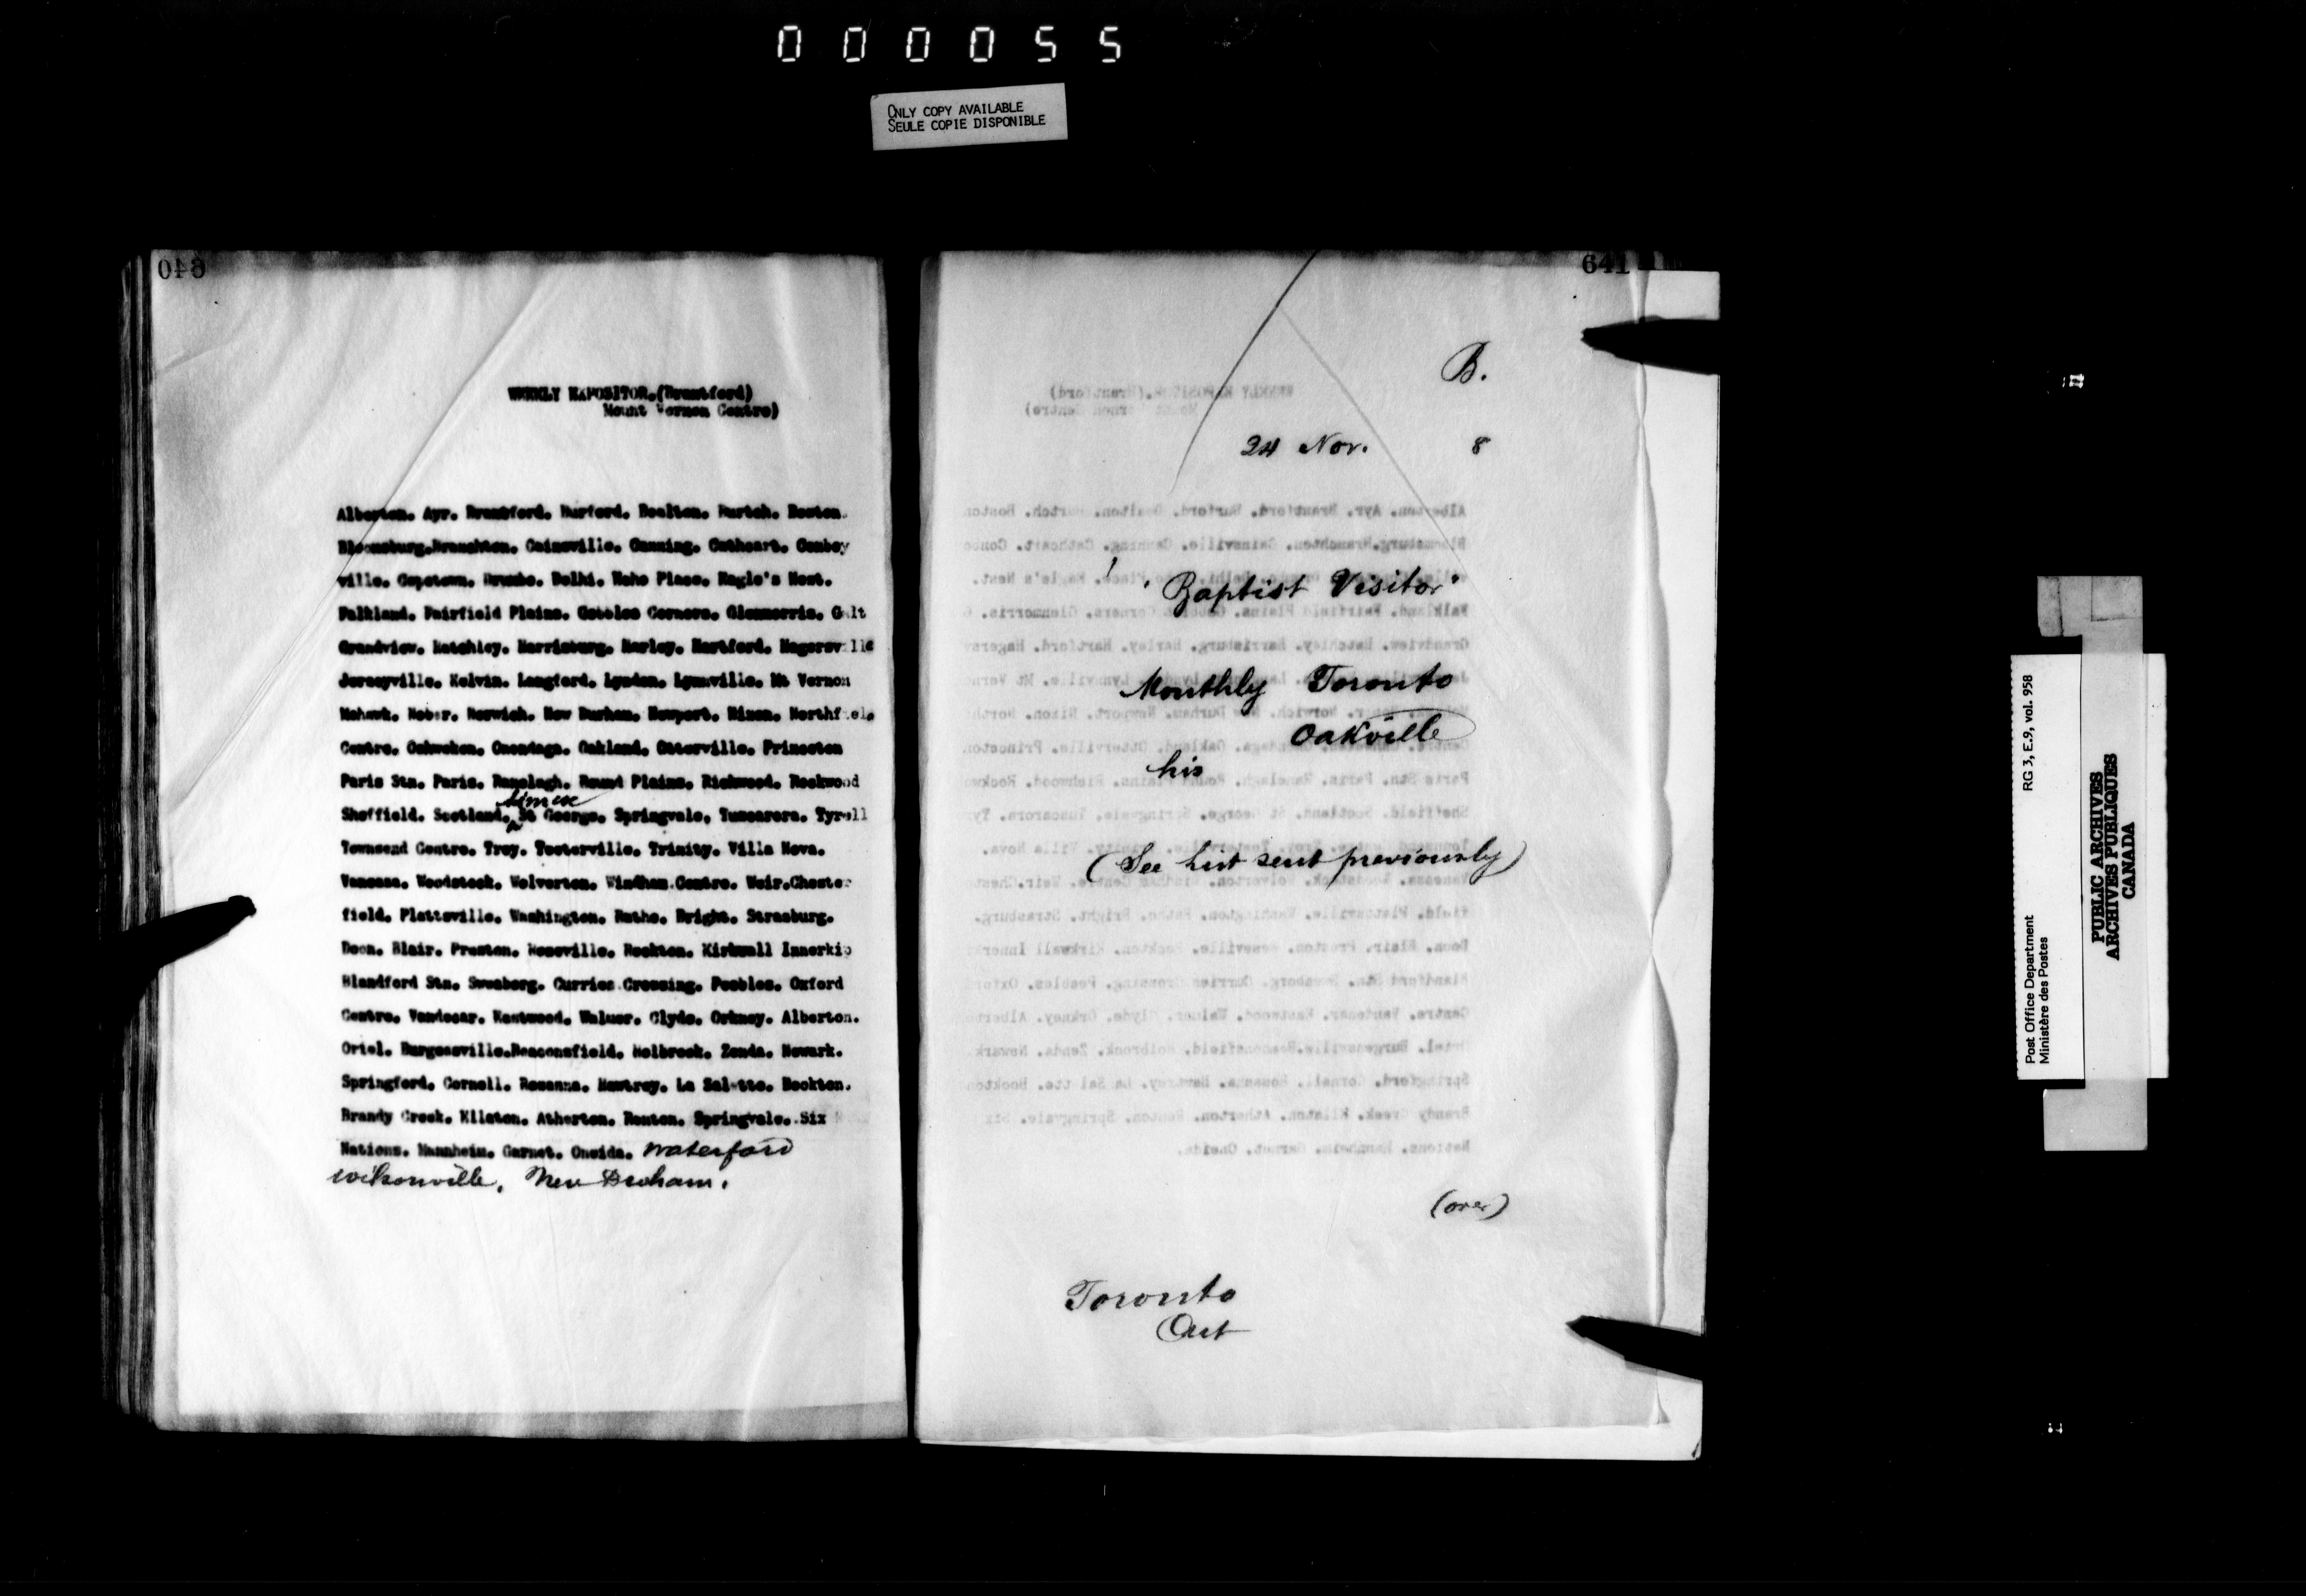 000055
ONLY COPY AVAILABLE
SEULE COPIE DISPONIBLE
640
WEEKLY EXPOSITOR.(Brantford)
Mount Vernon Centre)
Alberton. Ayr. Brantford. Burford. Bealton. Burtch. Boston.
Bloomsburg.Branchton. Cainsville. Canning. Cathcart. Conboy
ville. Copetown. Drumbo. Delhi. Echo Place. Eagle's Nest.
Falkland. Fairfield Plains. Gobbles Corners. Glenmorris. Galt
Grandview. Hatchley. Harrisburg. Harley. Hartford. Hagersville
Jerseyville. Kelvin. Langford. Lynden. Lynnville. Mt Vernon
Mohawk. Norwich. New Durham. Newport. Nixon. Northfield
Centre. Onondaga. Oakland. Otterville. Princeton
Paris Stn. Paris. Ranelagh. Round Plains. Richwood. Rockwood
Simcoe
Sheffield. Scotland. St George. Springvale. Tuscarora. Tyrell
Townsend Centre. Troy. Teeterville. Trinity. Villa Nova.
Vanessa. Woodstock. Wolverton. Windham Centre. Weir.Chester
field. Plattsville. Washington. Ratho. Bright. Strasburg.
Doon. Blair. Preston. Roseville. Rockton. Kirkwall Innerkip
Blandford Stn. Sweaborg. Curries Crossing. Peebles. Oxford
Centre. Vandecar. Eastwood. Walmer. Clyde. Orkney. Alberton.
Oriel. Burgessville.Beaconsfield. Holbrook. Zenda. Newark.
Springford. Cornell. Rosanna. Hawtrey. La Salette. Bookton.
Brandy Creek. Atherton. Renton. Springvale. Six
Nations. Mannheim. Garnet. Oneida. Waterford
Wilsonville, New Durham.
641
B.
24 Nov. 8
! "Baptist Visitor"
Monthly Toronto
Oakville
his
(See list sent previously)
(over)
Toronto
Ont
RG 3, E.9, vol. 958
Post Office Department
Ministère des Postes
PUBLIC ARCHIVES
ARCHIVES PUBLIQUES
CANADA